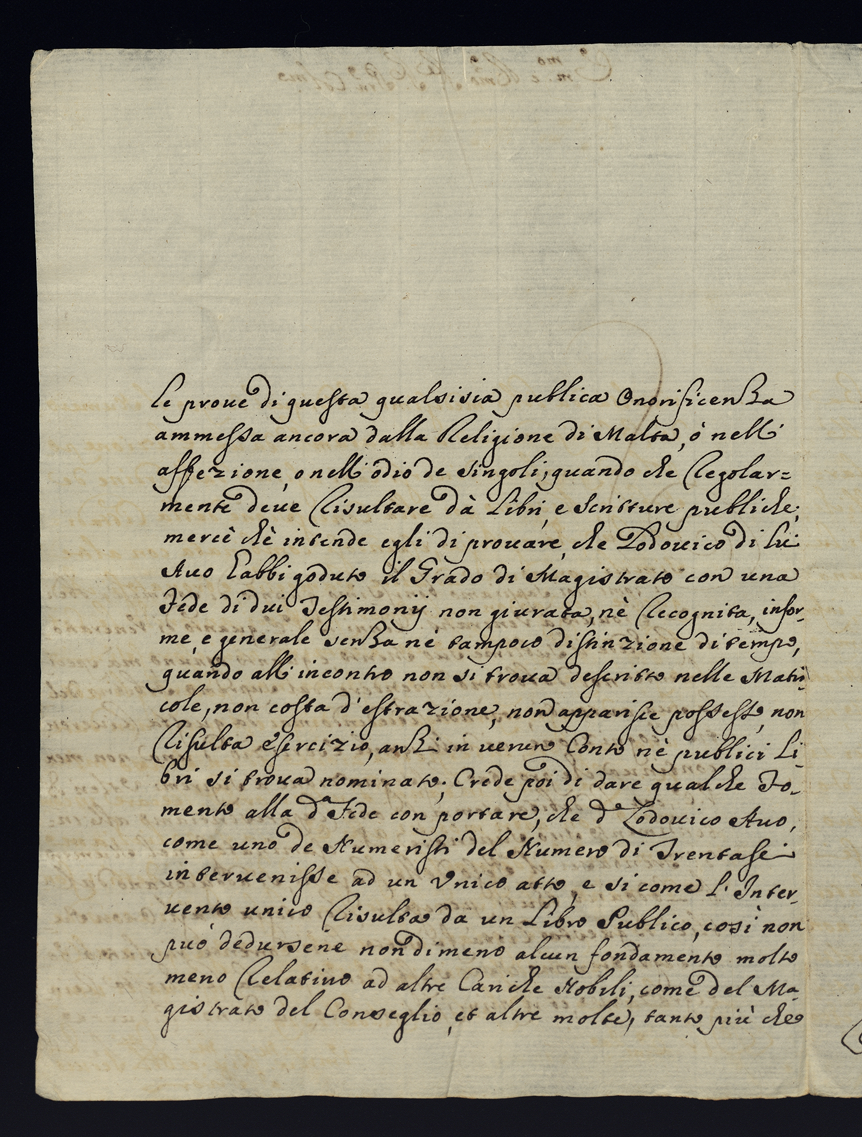 le proue di questa qualsisia publica Onorificenza
ammessa ancora dalla Religione di Malta, ò nell'
affezione, o nell'odio de Singoli; quando che Regolar=
mente deue Risultare dà Libri, e Scritture publiche;
mercè chè intende egli di prouare, che Lodouico di lui
Auo habbi goduto il Grado di Magistrato con una
Fede di dui Testimonij non giurata, nè Recognita, infor-
me, e generale senza nè tampoco distinzione di tempo,
quando all'incontro non si troua descritto nelle Matri-
cole, non costa d'estrazione, non apparisce possesso, non
Risulta esercizio, anzi in uerun Conto nè publici Li-
bri si troua nominato; Crede poi di dare qualche Fo-
mento alla da Fede con portare, che do Lodouico Auo,
come uno de Numeristi del Numero di Trentasei
interuenisse ad un Vnico atto, e si come l'Inter-
uento unico Risulta da un Libro Publico, così non
può dedursene nondimeno alcun fondamento molto
meno Relatiuo ad altre Cariche Nobili, come del Ma-
gistrato del Conseglio, et altre molte, tanto più che